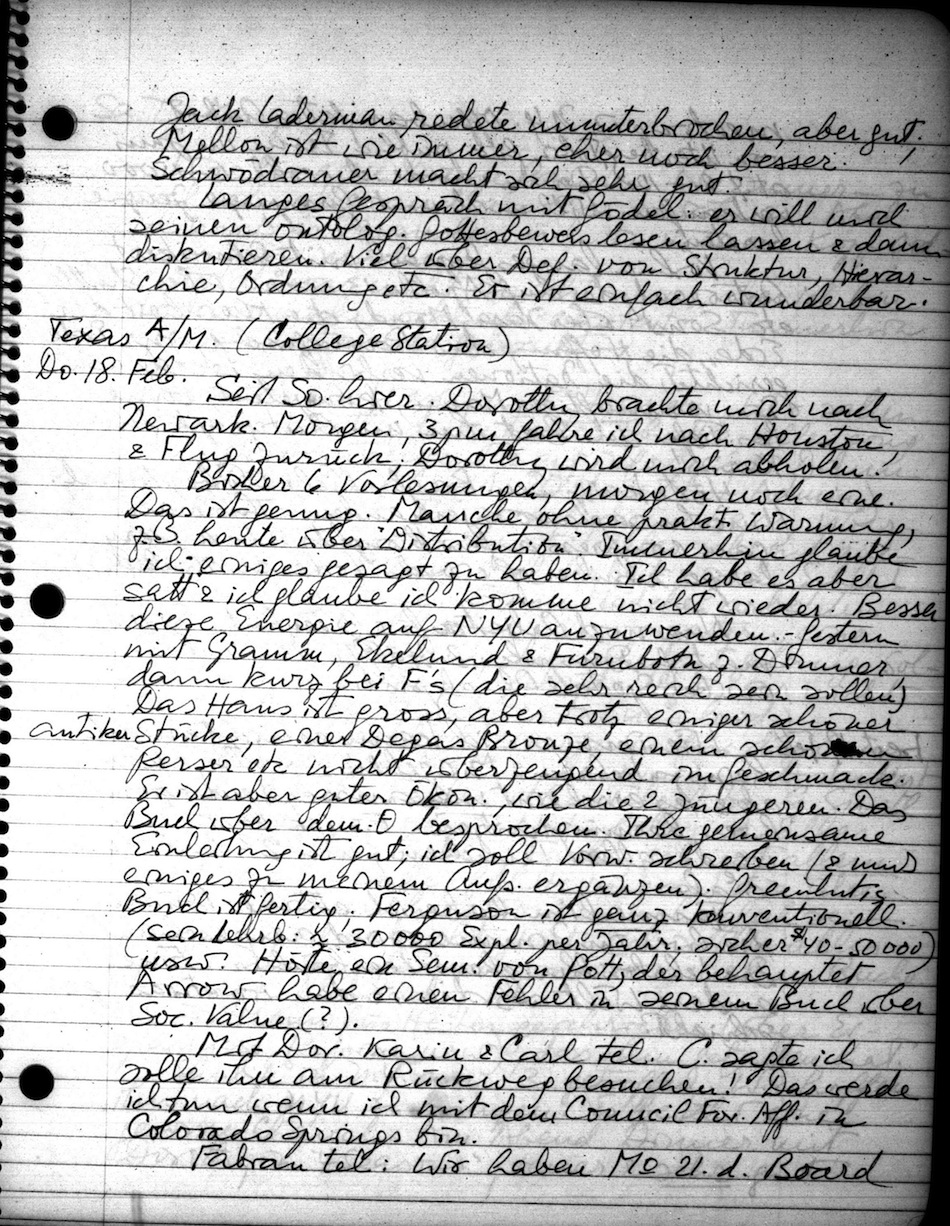 Jack Laderman redete ununterbrochen, aber gut;
Mellon ist wie immer, eher noch besser.
Schwödiauer macht sich sehr gut.
Langes Gespräch mit Gödel: er will mich
seinen ontolog. Gottesbeweis lesen lassen & dann
diskutieren. Viel über Def. von Struktur, Hierar-
chie, Ordnung etc. Er ist einfach wunderbar.
Texas A/M. (College Station)
Do. 18. Feb.
Seit So. hier. Dorothy brachte mich nach
Newark. Morgen, 3pm fahre ich nach Houston,
& Flug zurück. Dorothy wird mich abholen!
Bisher 6 Vorlesungen, morgen noch eine.
Das ist genug. Manche ohne prakt. Warnung,
z.B. heute über "Distribution". Immerhin glaube
ich einiges gesagt zu haben. Ich habe es aber
satt & ich glaube ich komme nicht wieder. Besser
diese Energie auf NYU anzuwenden. - Gestern
mit Gramm, Ekelund & Furubotn z. Dinner,
dann kurz bei F's (die sehr reich sein sollen)
Das Haus ist gross, aber trotz einiger schöner
antiker Stücke, einer Degas Bronze, einem schönen
Perser etc nicht überzeugend im Geschmack.
Er ist aber guter Ökon., wie die 2 jüngeren. Das
Buch über dem. Θ besprochen. Ihre gemeinsame
Einleitung ist gut; ich soll Vorw. schreiben (& muss
einiges zu meinem Aufs. ergänzen). Greenhut's
Buch ist fertig. Ferguson ist ganz konventionell.
(sein Lehrb.: 30000 Expl. per Jahr, sicher $40-50000)
usw. Hörte ein Sem. von Pott, der behauptet
Arrow habe einen Fehler in seinem Buch über
Soc. Value (?).
Mit Dor. Karin & Carl tel. C. sagte ich
solle ihn am Rückweg besuchen! Das werde
ich tun wenn ich mit dem Council For. Aff. in
Colorado Springs bin.
Fabian tel: Wir haben Mo 21. d. Board